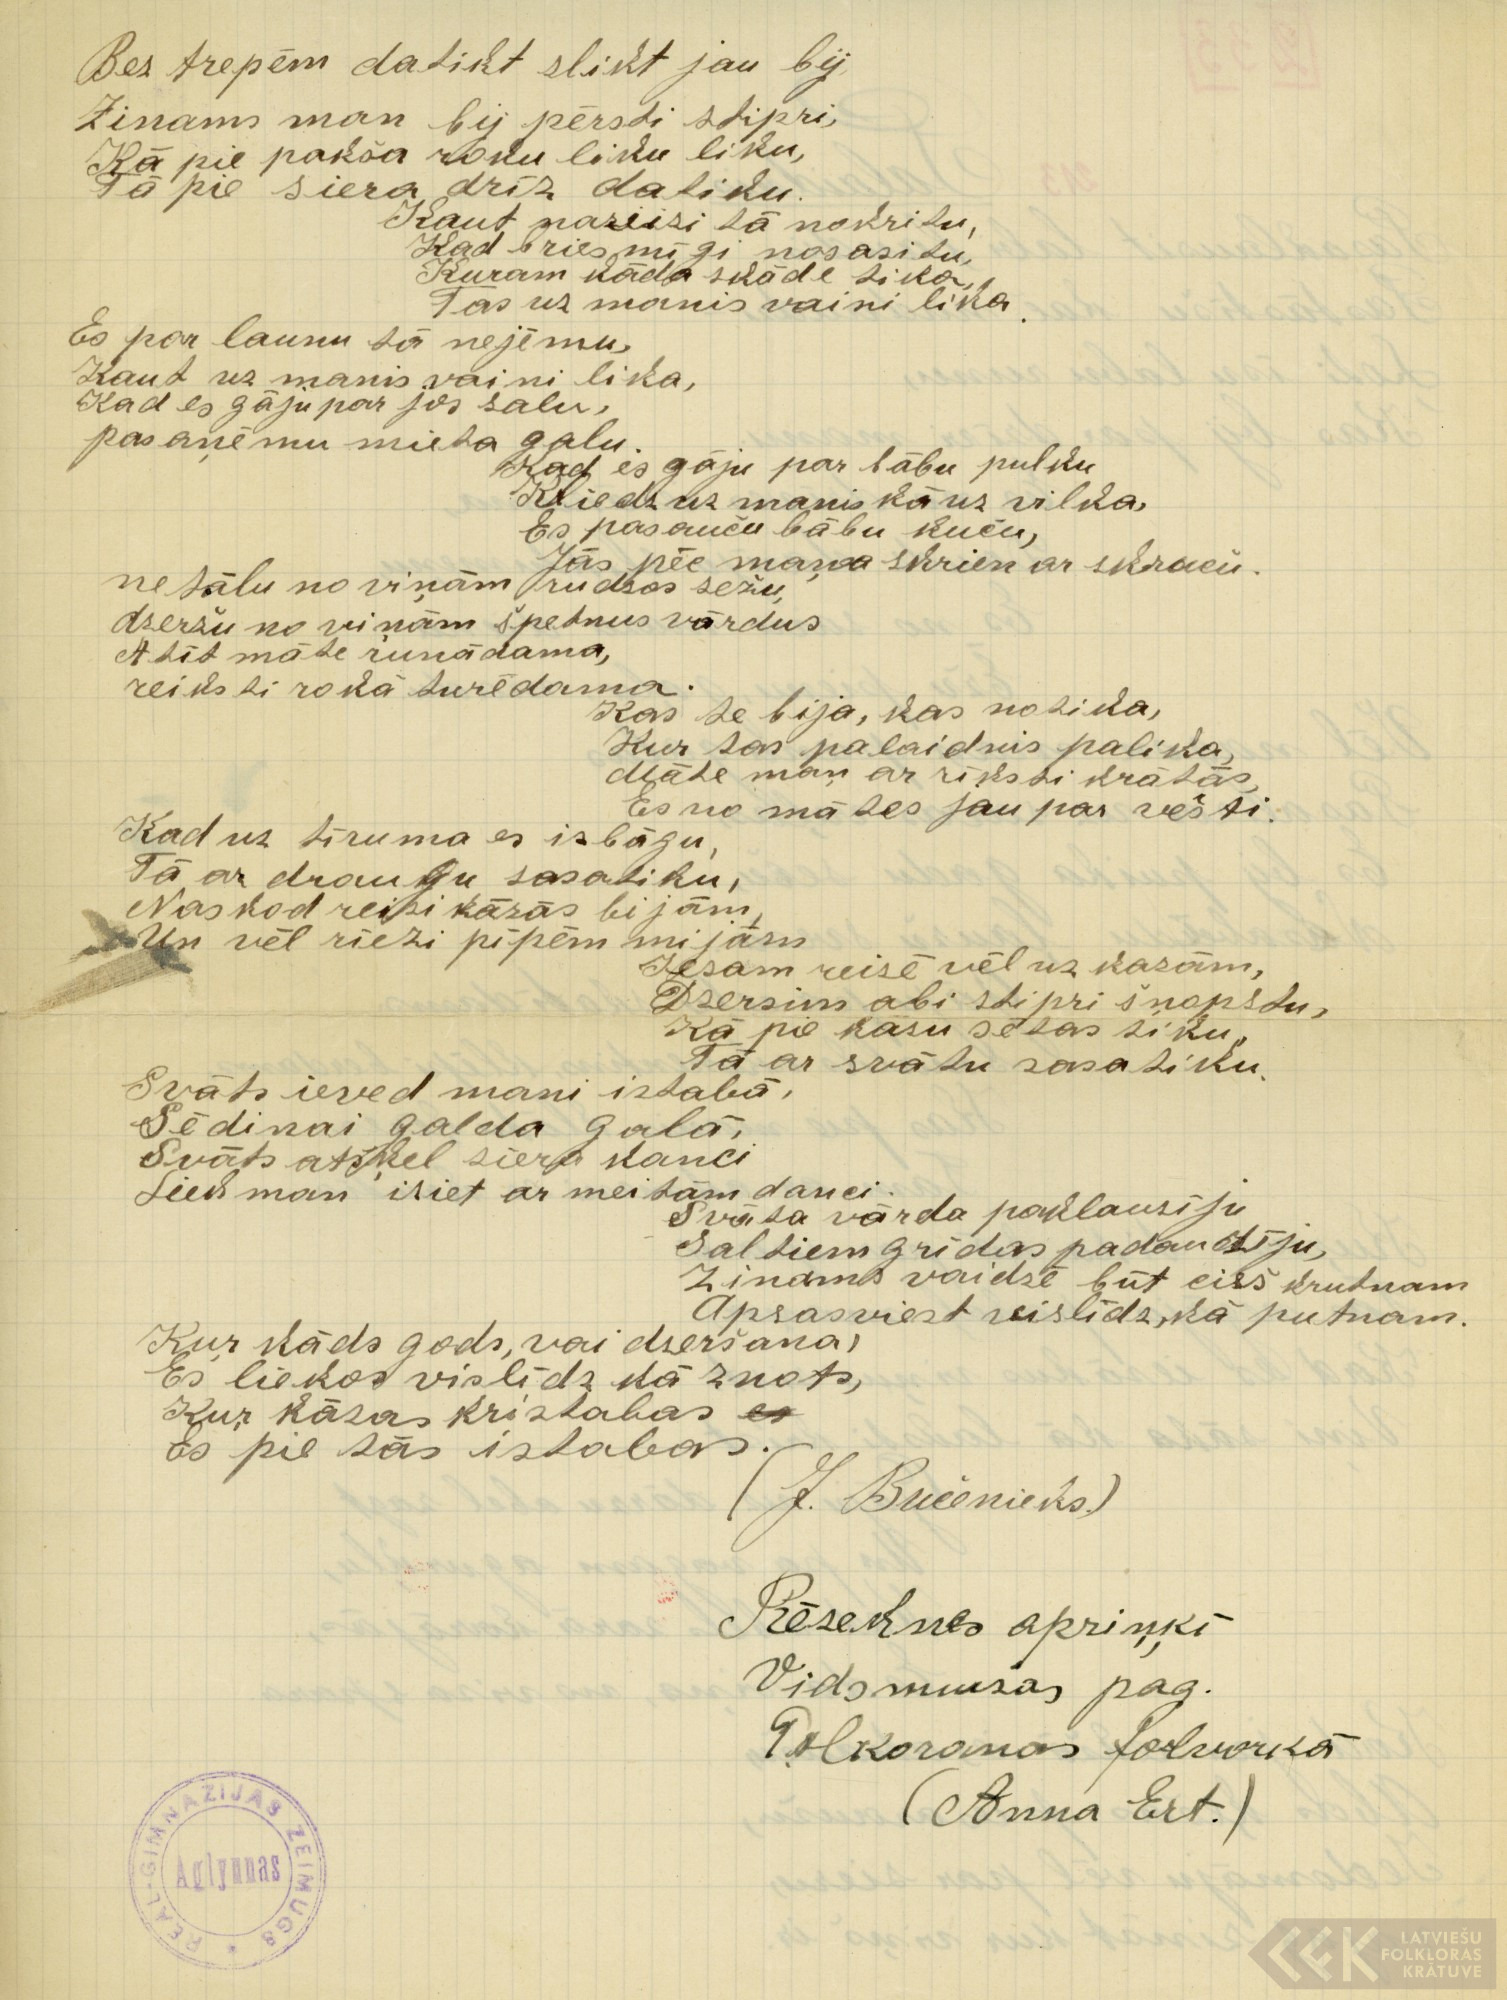 Bez trepēm datikt slikt jau bij,
Zinams man bij pērsti stipri,
Kā pie pakša roku liku liku,
Tā pie siera drīz datiku.
Kaut nazeizi tā nokritu,
Kad briesmīgi nosasitu,
Kuram kāda skāde tika,
Tās uz manis vaini lika.
Es par launu tā nejēmu,
Kaut uz manis vaini lika,
Kad es gāju par jos salu,
pasaņēmu mieta galu.
Kad es gāju par bābu pulku
Kliedz uz manis kā uz vilka,
Es pasauču bābu kuču,
Jās pēc maņa skrien ar skraču.
netālu no viņām rudzos sežu,
dzeržu no viņām špetnus vārdus
Atīt māte runādama,
reiksti rokā turēdama.
Kas te bija, kas notika,
Kur tas palaidnis palika,
Māte maņ ar rīksti krātās,
Es no mātes jau par vešti.
Kad uz tīruma es izbāgu,
Tā ar draugu sasatiku,
Naskod reizi kāzās bijām,
Un vēl rīezi pīpēm mijām
Iesam reizē vēl uz kazām,
Dzersim abi stipri šnopstu,
Kā pie kāsu sētas tiku,
Tā ar svātu sasatiku.
Svāts ieved mani istabā,
Sēdinai galda galā,
Svāts atšķel siera kanci
Liek man iziet ar meitām danci.
Svāta vārda paklausīju
Saltiem grīdas padauzīju,
Zinams vaidzē būt cieš krutnam
Apsasviest vislīdz, kā putnam.
Kur kāds gods, vai dzeršana,
Es liekos vislīdz kā znots,
Kur kāzas kristabas
Es pie tās istabas.
(J. Bučenieks.)
Rēzeknes apriņķī
Vidsmuižas pag.
Polkoranas folvorkā
(Anna Ert.)
REAL-GIMNAZIJAS ZEIMUGS
Aglynnas
LATVIEŠU
FOLKLORAS
KRĀTUVE